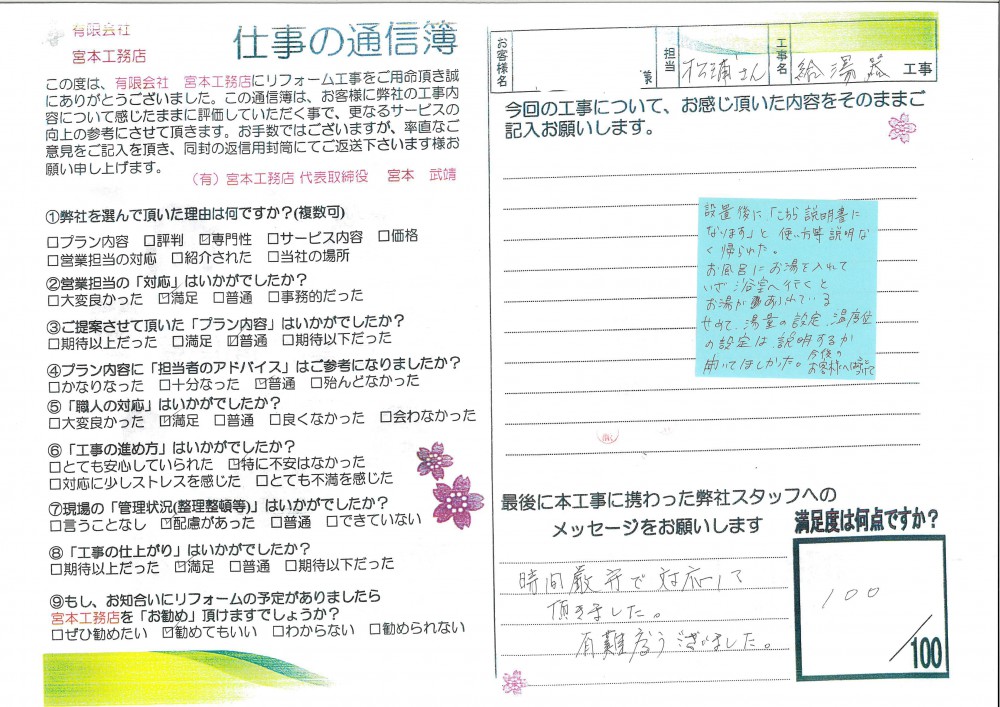 有限会社
宮本工務店
仕事の通信簿
この度は、有限会社　宮本工務店にリフォーム工事をご用命頂き誠
にありがとうございました。この通信簿は、お客様に弊社の工事内
容について感じたままに評価していただく事で、更なるサービスの
向上の参考にさせて頂きます。お手数ではございますが、率直なご
意見をご記入を頂き、同封の返信用封筒にてご返送下さいます様お
願い申し上げます。
（有）宮本工務店 代表取締役　宮本　武靖
①弊社を選んで頂いた理由は何ですか？(複数可)
□プラン内容　□評判　☑専門性　□サービス内容　□価格
□営業担当の対応　□紹介された　□当社の場所
②営業担当の「対応」はいかがでしたか？
□大変良かった　☑満足　□普通　□事務的だった
③ご提案させて頂いた「プラン内容」はいかがでしたか？
□期待以上だった　□満足　☑普通　□期待以下だった
④プラン内容に「担当者のアドバイス」はご参考になりましたか？
□かなりなった　□十分なった　☑普通　□殆んどなかった
⑤「職人の対応」はいかがでしたか？
□大変良かった　☑満足　□普通　□良くなかった　□会わなかった
⑥「工事の進め方」はいかがでしたか？
□とても安心していられた　☑特に不安はなかった
□対応に少しストレスを感じた　□とても不満を感じた
⑦現場の「管理状況(整理整頓等)」はいかがでしたか？
□言うことなし　☑配慮があった　□普通　□できていない
⑧「工事の仕上がり」はいかがでしたか？
□期待以上だった　☑満足　□普通　□期待以下だった
⑨もし、お知合いにリフォームの予定がありましたら
宮本工務店を「お勧め」頂けますでしょうか？
□ぜひ勧めたい　☑勧めてもいい　□わからない　□勧められない
お客様名
担当
松浦さん
工事名
給湯器　工事
今回の工事について、お感じ頂いた内容をそのままご
記入お願いします。
設置後に「こちら説明書に
なります」と 使い方等 説明な
く帰られた。
お風呂にお湯を入れて
いざ 浴室へ行くと
お湯があふれている
せめて、湯量の設定、温度位
の設定は、説明するか
聞いてほしかった。
今後の
最後に本工事に携わった弊社スタッフへの
メッセージをお願いします
時間厳守で対応して
頂きました。
有難度うございました。
満足度は何点ですか？
100
/100